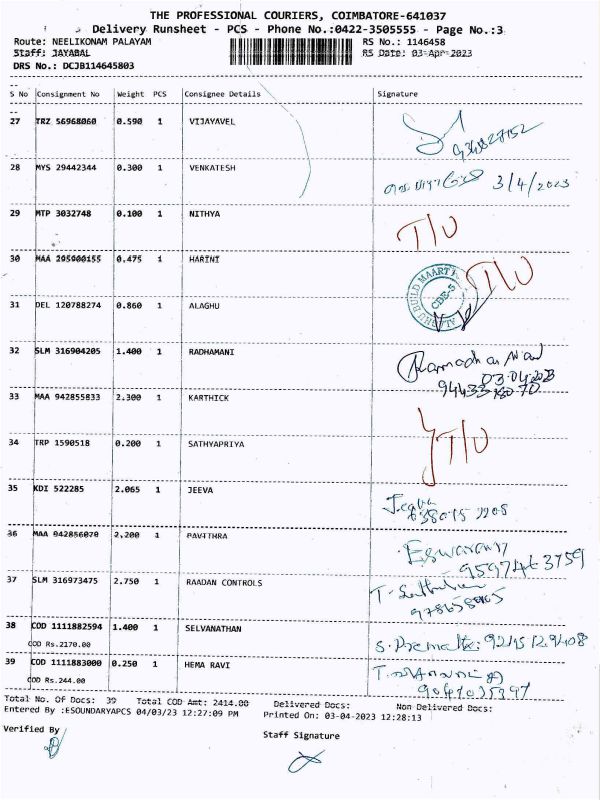 THE PROFESSIONAL COURIERS, COIMBATORE-641037
Delivery Runsheet - PCS - Phone No.:0422-3505555 - Page No.:3
Route: NEELIKONAM PALAYAM RS No.: 1146458
Staff: JAYABAL RS Date: 03-Apr-2023
DRS No.: DCJB114645803
S No Consignment No Weight PCS Consignee Details Signature
27 TRZ 56968060 0.590 1 VIJAYAVEL
28 MYS 29442344 0.300 1 VENKATESH 3/4/2023
29 MTP 3032748 0.100 1 NITHYA T/O
30 MAA 295000155 0.475 1 HARINI T/O
BUILD MAART
CDE-5
31 DEL 120788274 0.860 1 ALAGHU
32 SLM 316904205 1.400 1 RADHAMANI
03.04.2023
33 MAA 942855833 2.300 1 KARTHICK
34 TRP 1590518 0.200 1 SATHYAPRIYA T/O
35 KDI 522285 2.065 1 JEEVA
36 MAA 942856070 2.200 1 PAVITHRA Eswaran
9597463759
37 SLM 316973475 2.750 1 RAADAN CONTROLS
38 COD 1111882594 1.400 1 SELVANATHAN
COD Rs.2170.00
39 COD 1111883000 0.250 1 HEMA RAVI
COD Rs.244.00
Total No. Of Docs: 39 Total COD Amt: 2414.00 Delivered Docs: Non Delivered Docs:
Entered By :ESOUNDARYAPCS 04/03/23 12:27:09 PM Printed On: 03-04-2023 12:28:13
Verified By Staff Signature